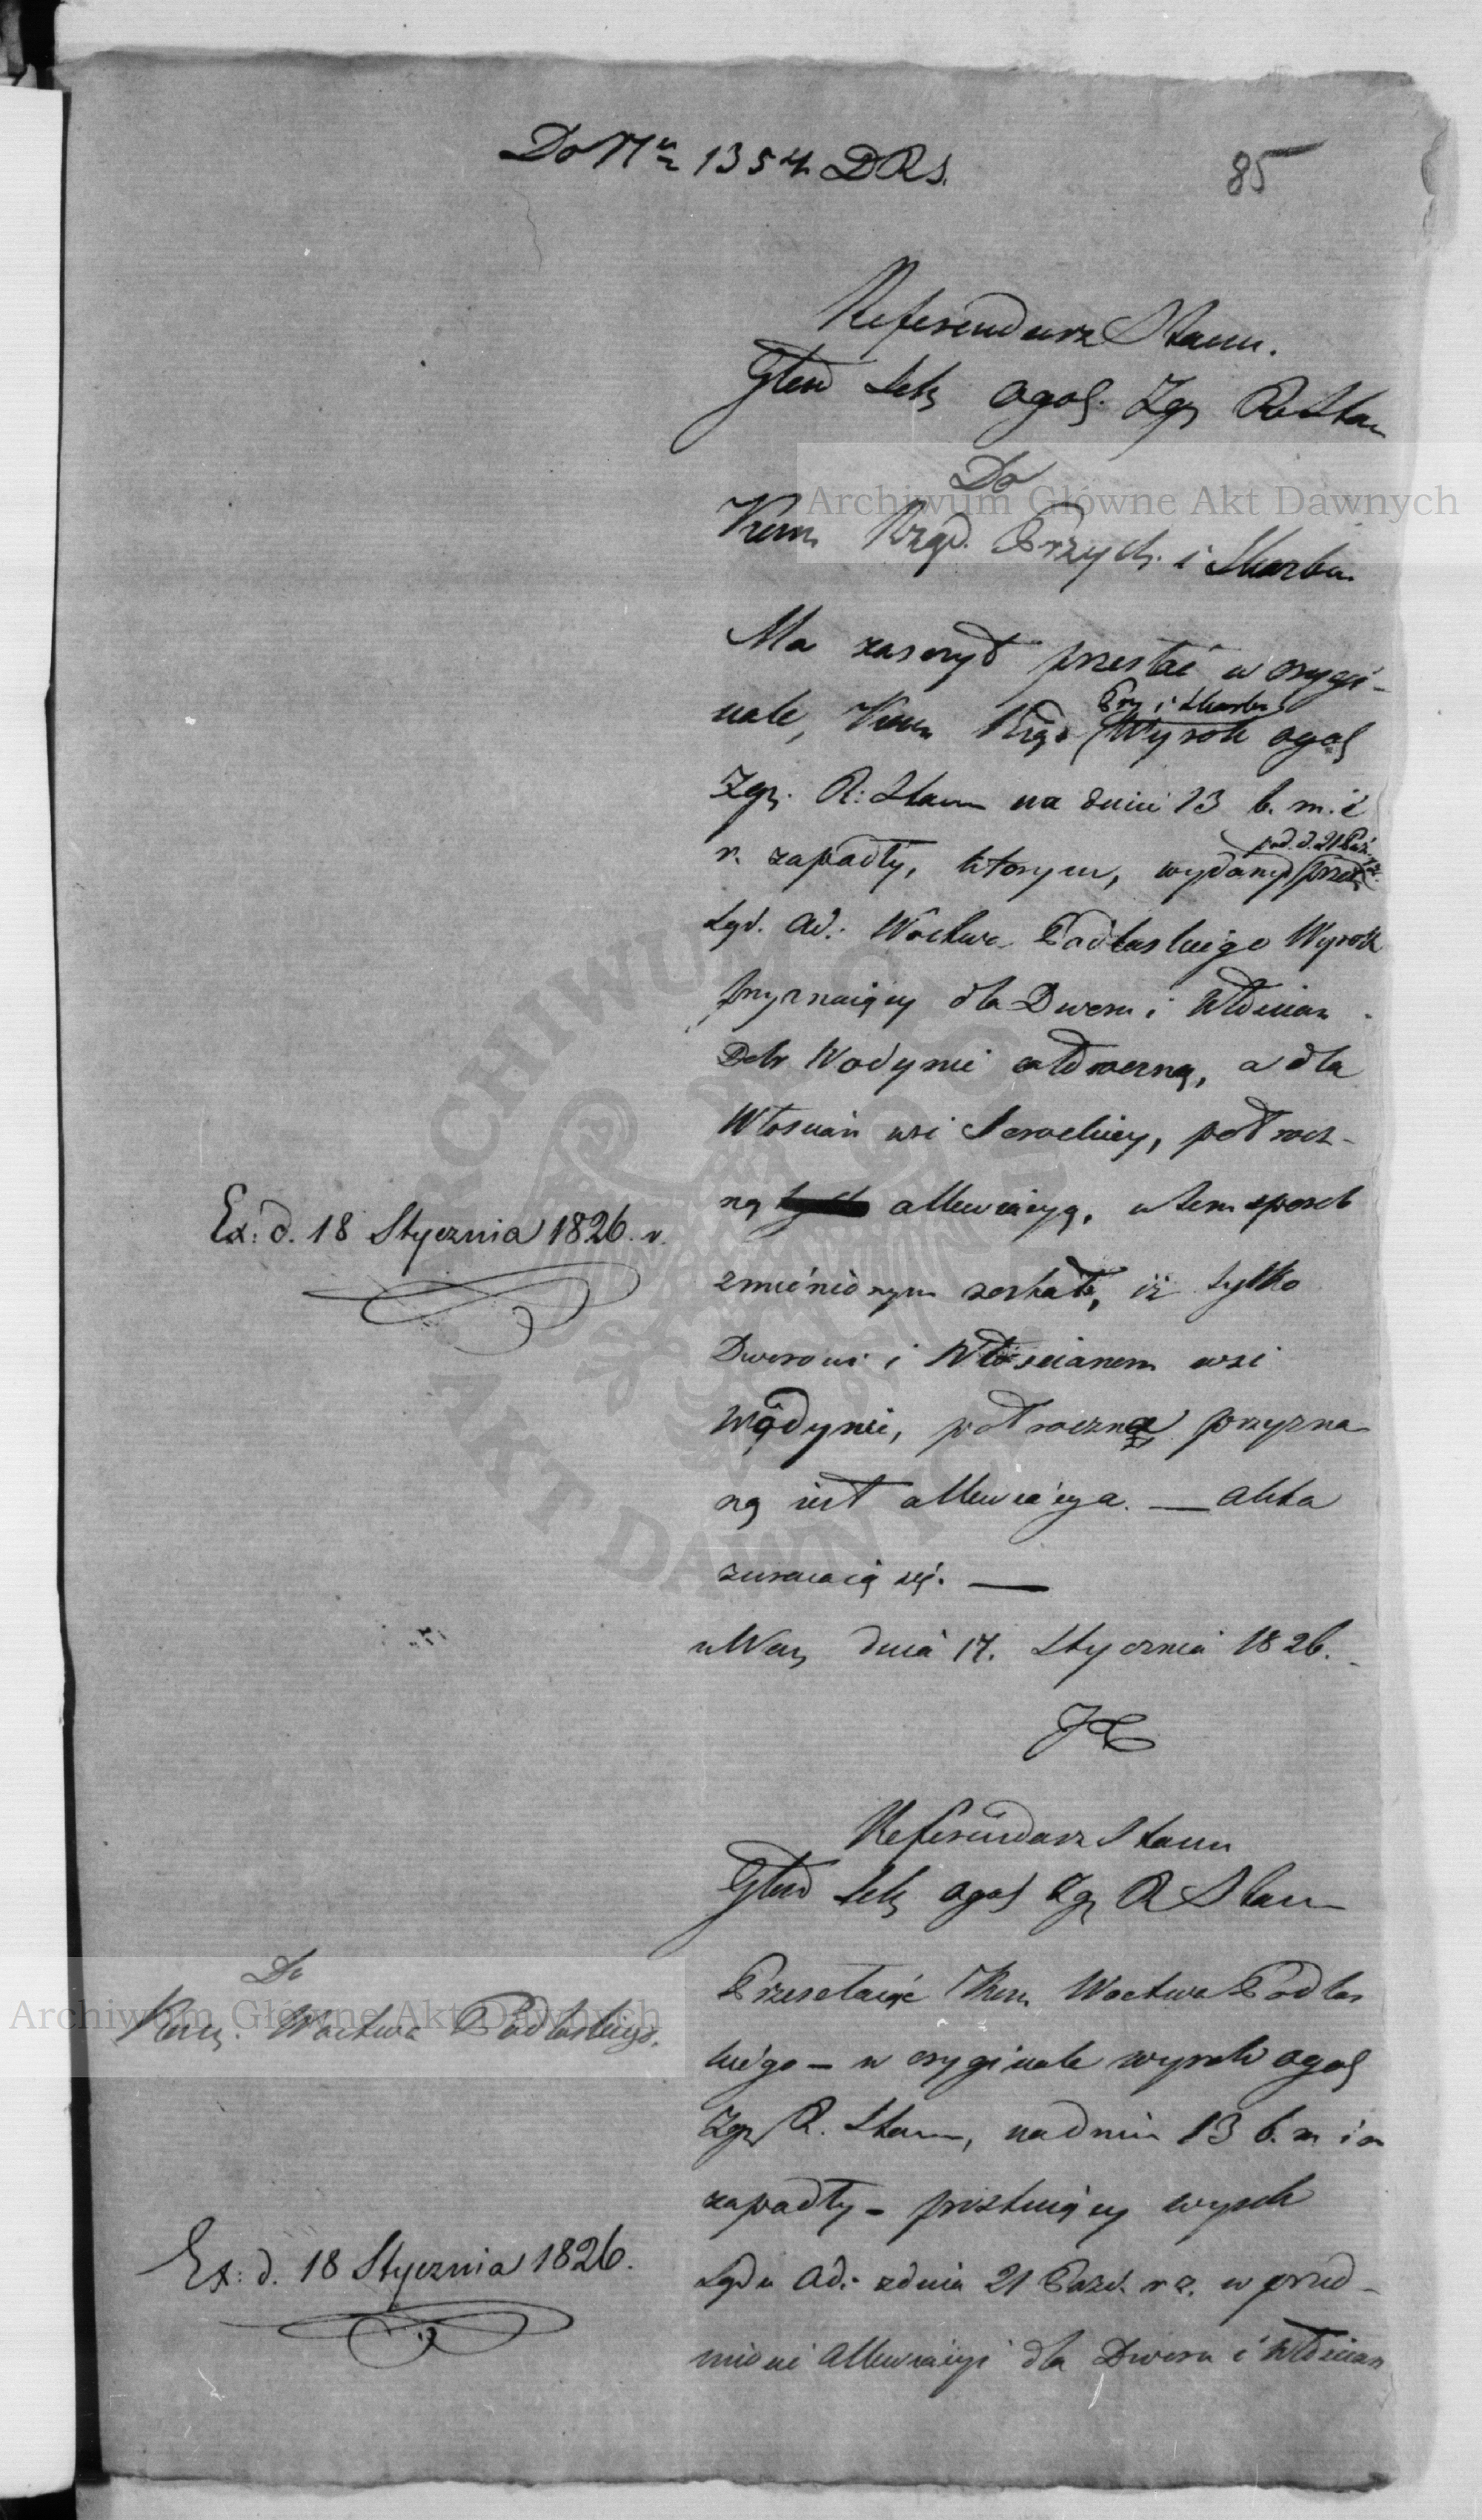 Do Nru 1354 DRS.
85
Referendarz Stanu.
Głów Sek ogol. Zgr R Stanu
Do
Kom Rząd. Przych. i Skarbu
Ma zaszczyt przesłać w orygi-
nale, Kom Rząd Prz i Skarbu Wyrok ogol
Zgr. R: Stanu na dniu 13 b. m. i
r. zapadły, którym, wydany pod. d. 21 Paź. przez
Sąd. Ad: Wodztwa Podlaskiego Wyrok
przyznaiący dla Dworu i Włościan
Dobr Wodynie całoroczną, a dla
Włościan wsi Seroczkiey, półrocz-
ną allewiacyą, w tem sposob
zmienionym został, iż tylko
Dworowi i Włościanom wsi
Wodynie, półroczna przyzna
ną iest allewiacya. — Akta
zwracaią się. —
w War dnia 17. Stycznia 1826.
Ex: d. 18 Stycznia 1826. r.
Referendarz Stanu
Głów Sek ogol Zgr R Stanu
Do
Kom. Wodztwa Podlaskiego.
Przesełaiąc Kom Wodztwa Podlas
kiego — w oryginale wyrok ogol
Zgr R. Stanu, na dniu 13 b. m i r
zapadły — wyrok
Sądu Ad: z dnia 21 Paźd. r z. w przed-
miocie Allewiacyi dla Dworu i Włościan
Ex: d. 18 Stycznia 1826.
Archiwum Główne Akt Dawnych
Archiwum Główne Akt Dawnych
ARCHIWUM GŁÓWNE AKT DAWNYCH